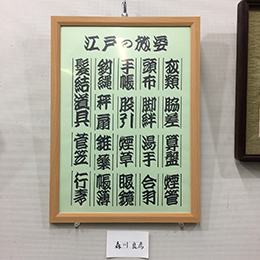 江戸の旅姿
衣類 脇差 算盤 煙管
頭巾 脚絆 湯手 合羽
手帳 股引 煙草 眼鏡
鈎縄 秤 扇 錐 薬 帳簿
髪結道具 菅笠 行李
森川